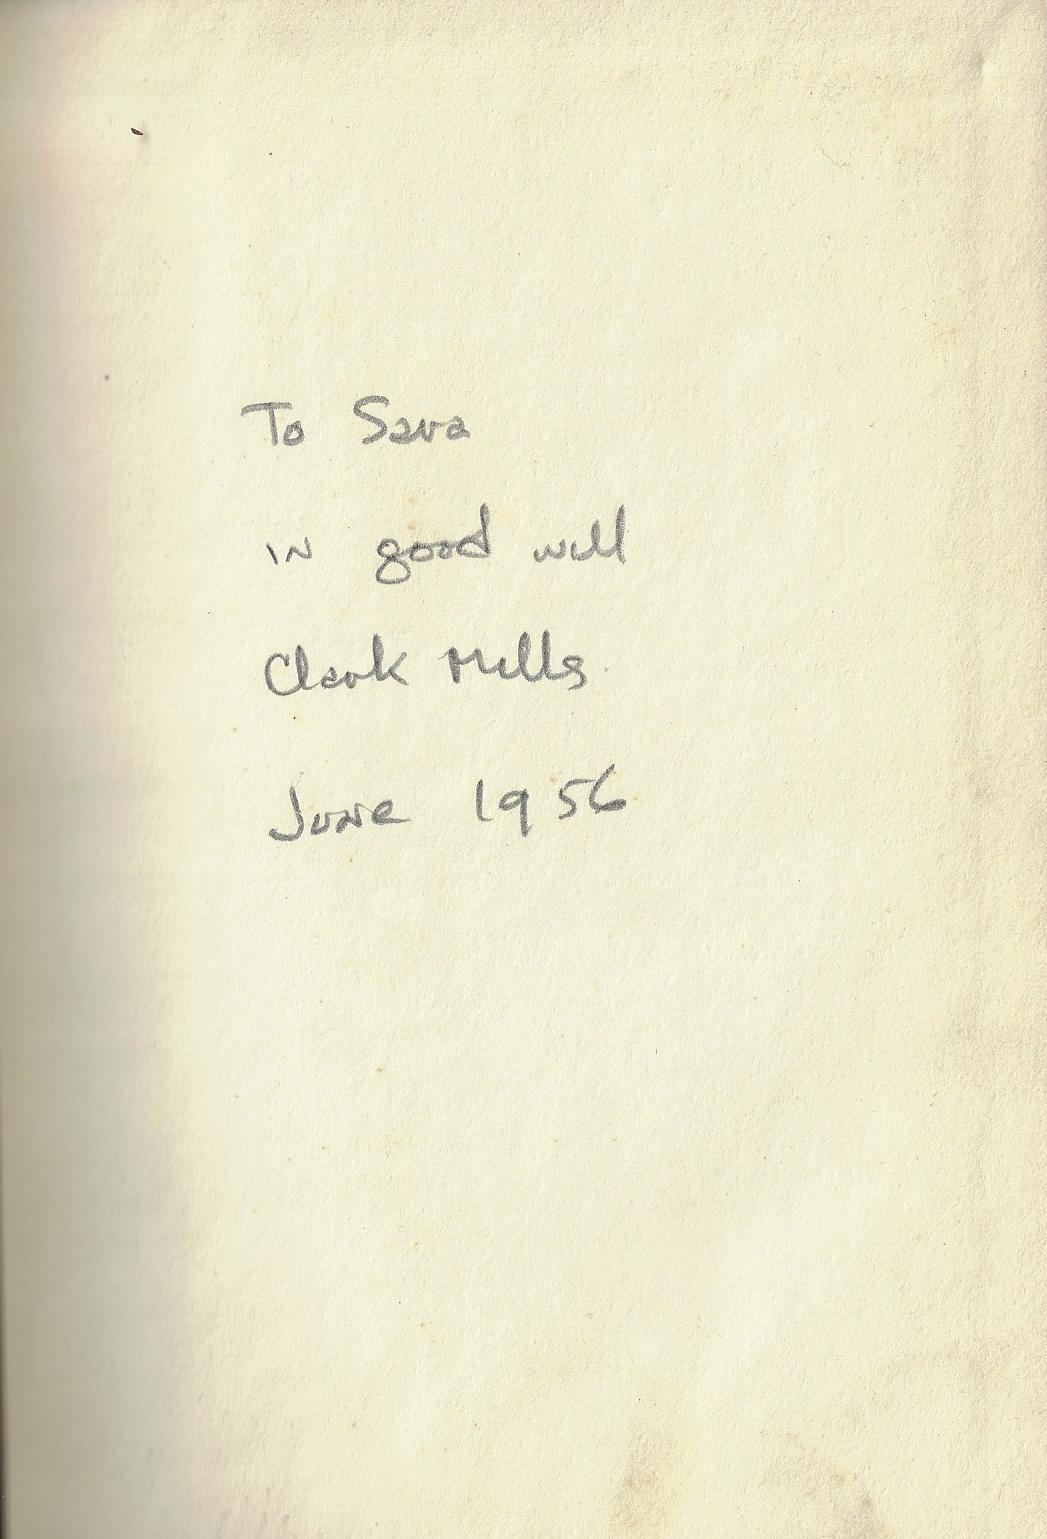 To Sava
in good will
Clark Mills
June 1956